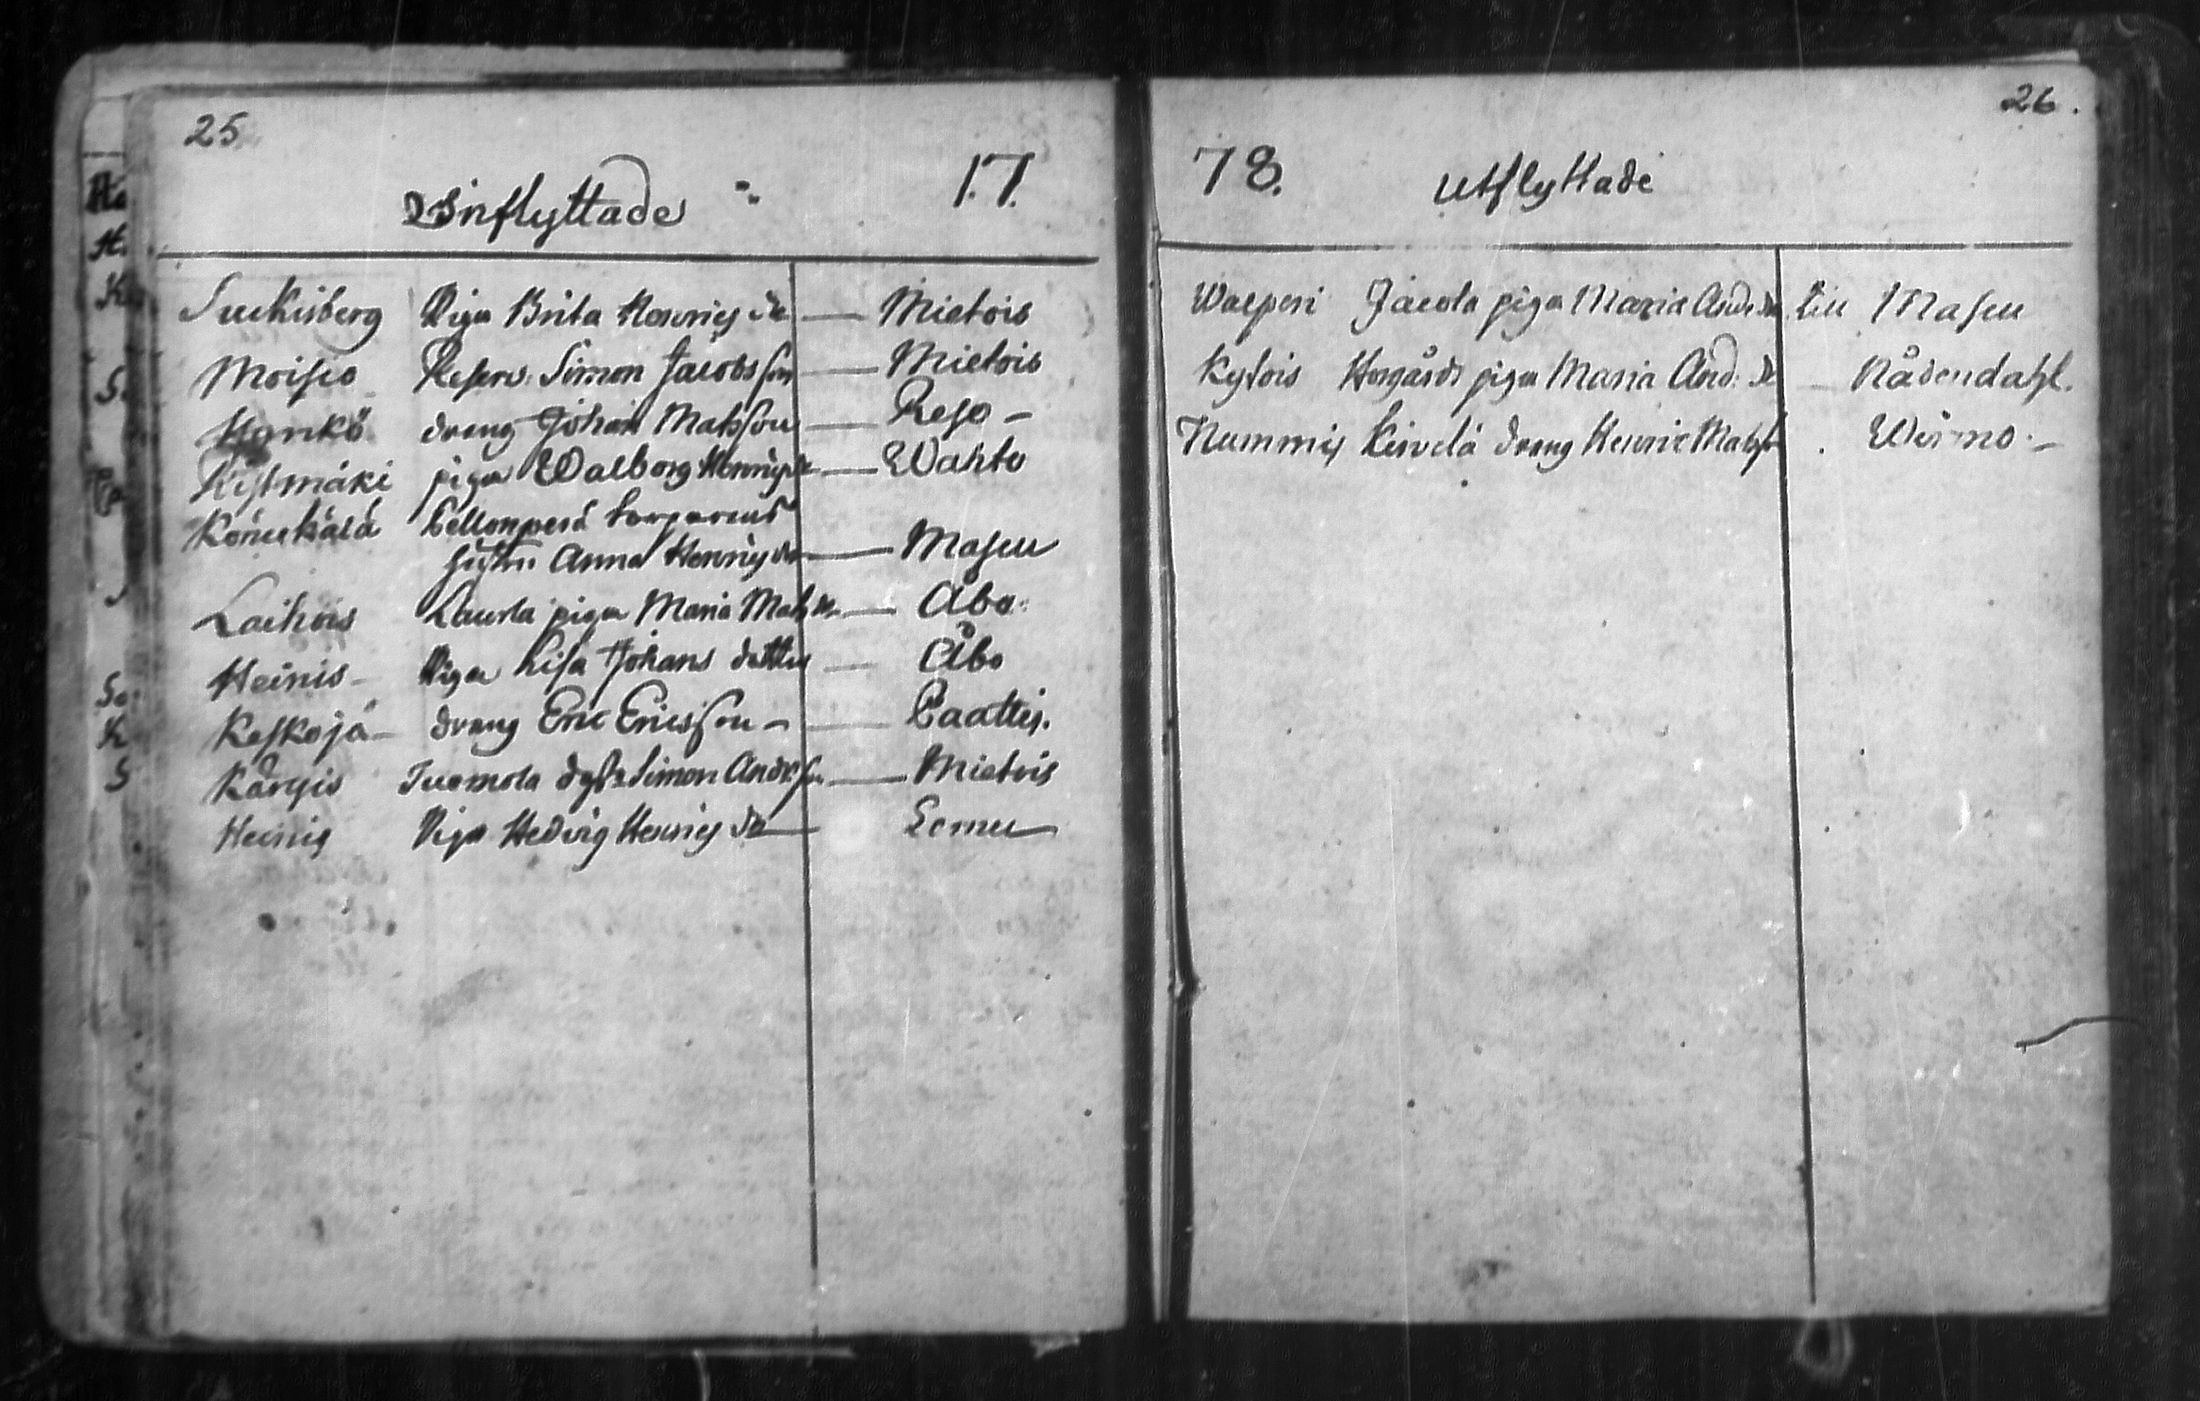 25
17
Inflyttade
Suckisberg Piga Brita Henrics dr Mietois
Moisio Reserv: Simon Jacobsson Mietois
Hankö dreng Johan Matsson Reso
Kystmäki piga Walborg Henrics dr Wahto
Könickälä Pellonperä torparens
hustru Anna Henrics dr Mascu
Laihois Laurla piga Maria Mats dr Åbo
Heinis Piga Lisa Johans dotter Åbo
Keskojä dreng Eric Ericsson Paattis.
Kärysis Tuomola Simon Andersson Mietois
Heinis Piga Hedvig Henrics dr Lemu
26.
78.
utflyttade
Walperi Jacola piga Maria And: dr till Mascu
Kylois Horgårds piga Maria And: dr Nådendahl.
Nummis Keivelä dreng Henric Matss. Wirmo